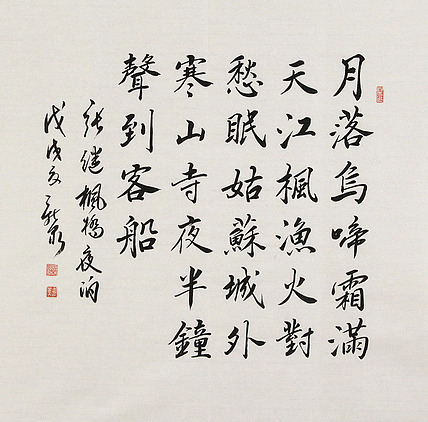 月落烏啼霜滿
天江楓漁火對
愁眠姑蘇城外
寒山寺夜半鐘
聲到客船
張繼楓橋夜泊
戊戌夏